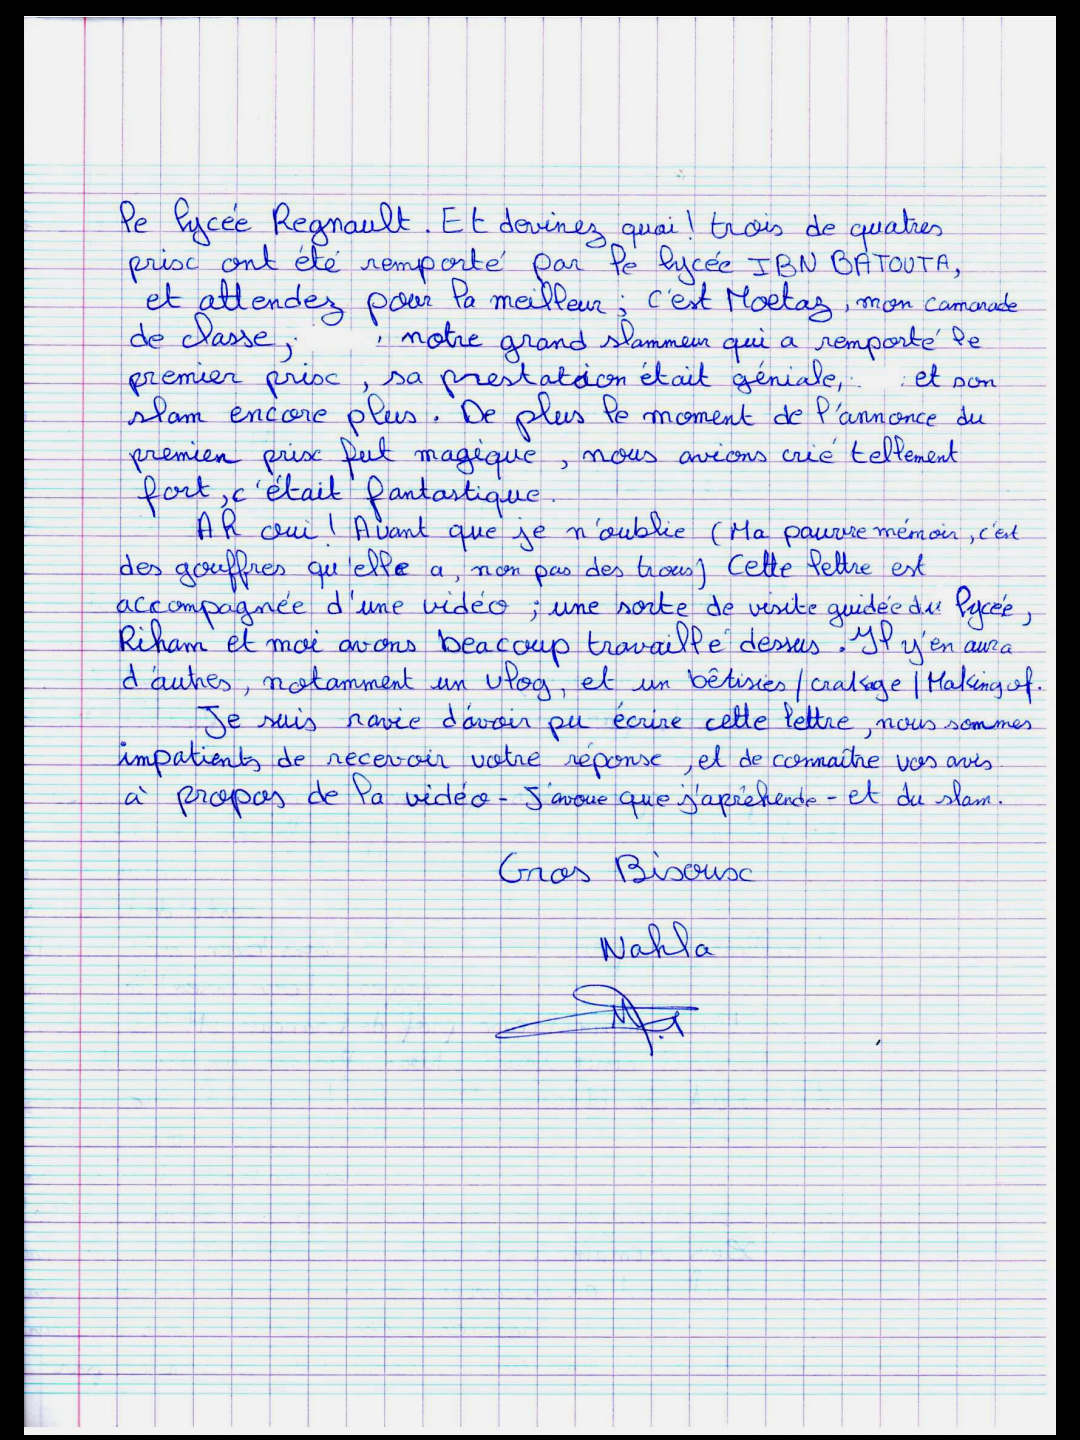 le lycée Regnault. Et devinez quoi! trois de quatres
prix ont été remporté par le lycée IBN BATOUTA,
et attendez pour la meilleur ; c'est Moetaz, mon camarade
de classe, notre grand slammeur qui a remporté le
premier prix, sa prestation était géniale, et son
slam encore plus. De plus le moment de l'annonce du
premier prix fut magique, nous avions crié tellement
fort, c'était fantastique.
Ah oui ! Avant que je n'oublie (Ma pauvre mémoir, c'est
des gouffres qu'elle a, non pas des trous) Cette lettre est
accompagnée d'une vidéo ; une sorte de visite guidée du lycée,
Riham et moi avons beaucoup travaillé dessus. Il y'en aura
d'autres, notamment un vlog, et un bêtisies / crakage / Making of.
Je suis ravie d'avoir pu écrire cette lettre, nous sommes
impatients de recevoir votre réponse, et de connaître vos avis
à propos de la vidéo - J'avoue que j'apréhende - et du slam.
Gros Bisoux
Nahla